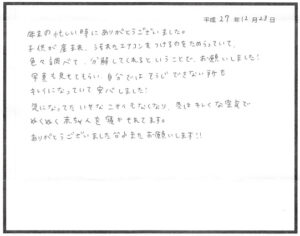 平成27年12月28日
年末の忙しい時にありがとうございました。
子供が産まれ、うちのエアコンをつけるのをためらっていて、
色々調べて、分解してくれるということで、お願いしました!
写真も見せてもらい、自分ではそうじできない所も
キレイになっていて安心しました!
気になっていたイヤなニオイもなくなり、冬はキレイな空気で
ぬくぬく赤ちゃんを寝かせれてます。
ありがとうございました またお願いします!!